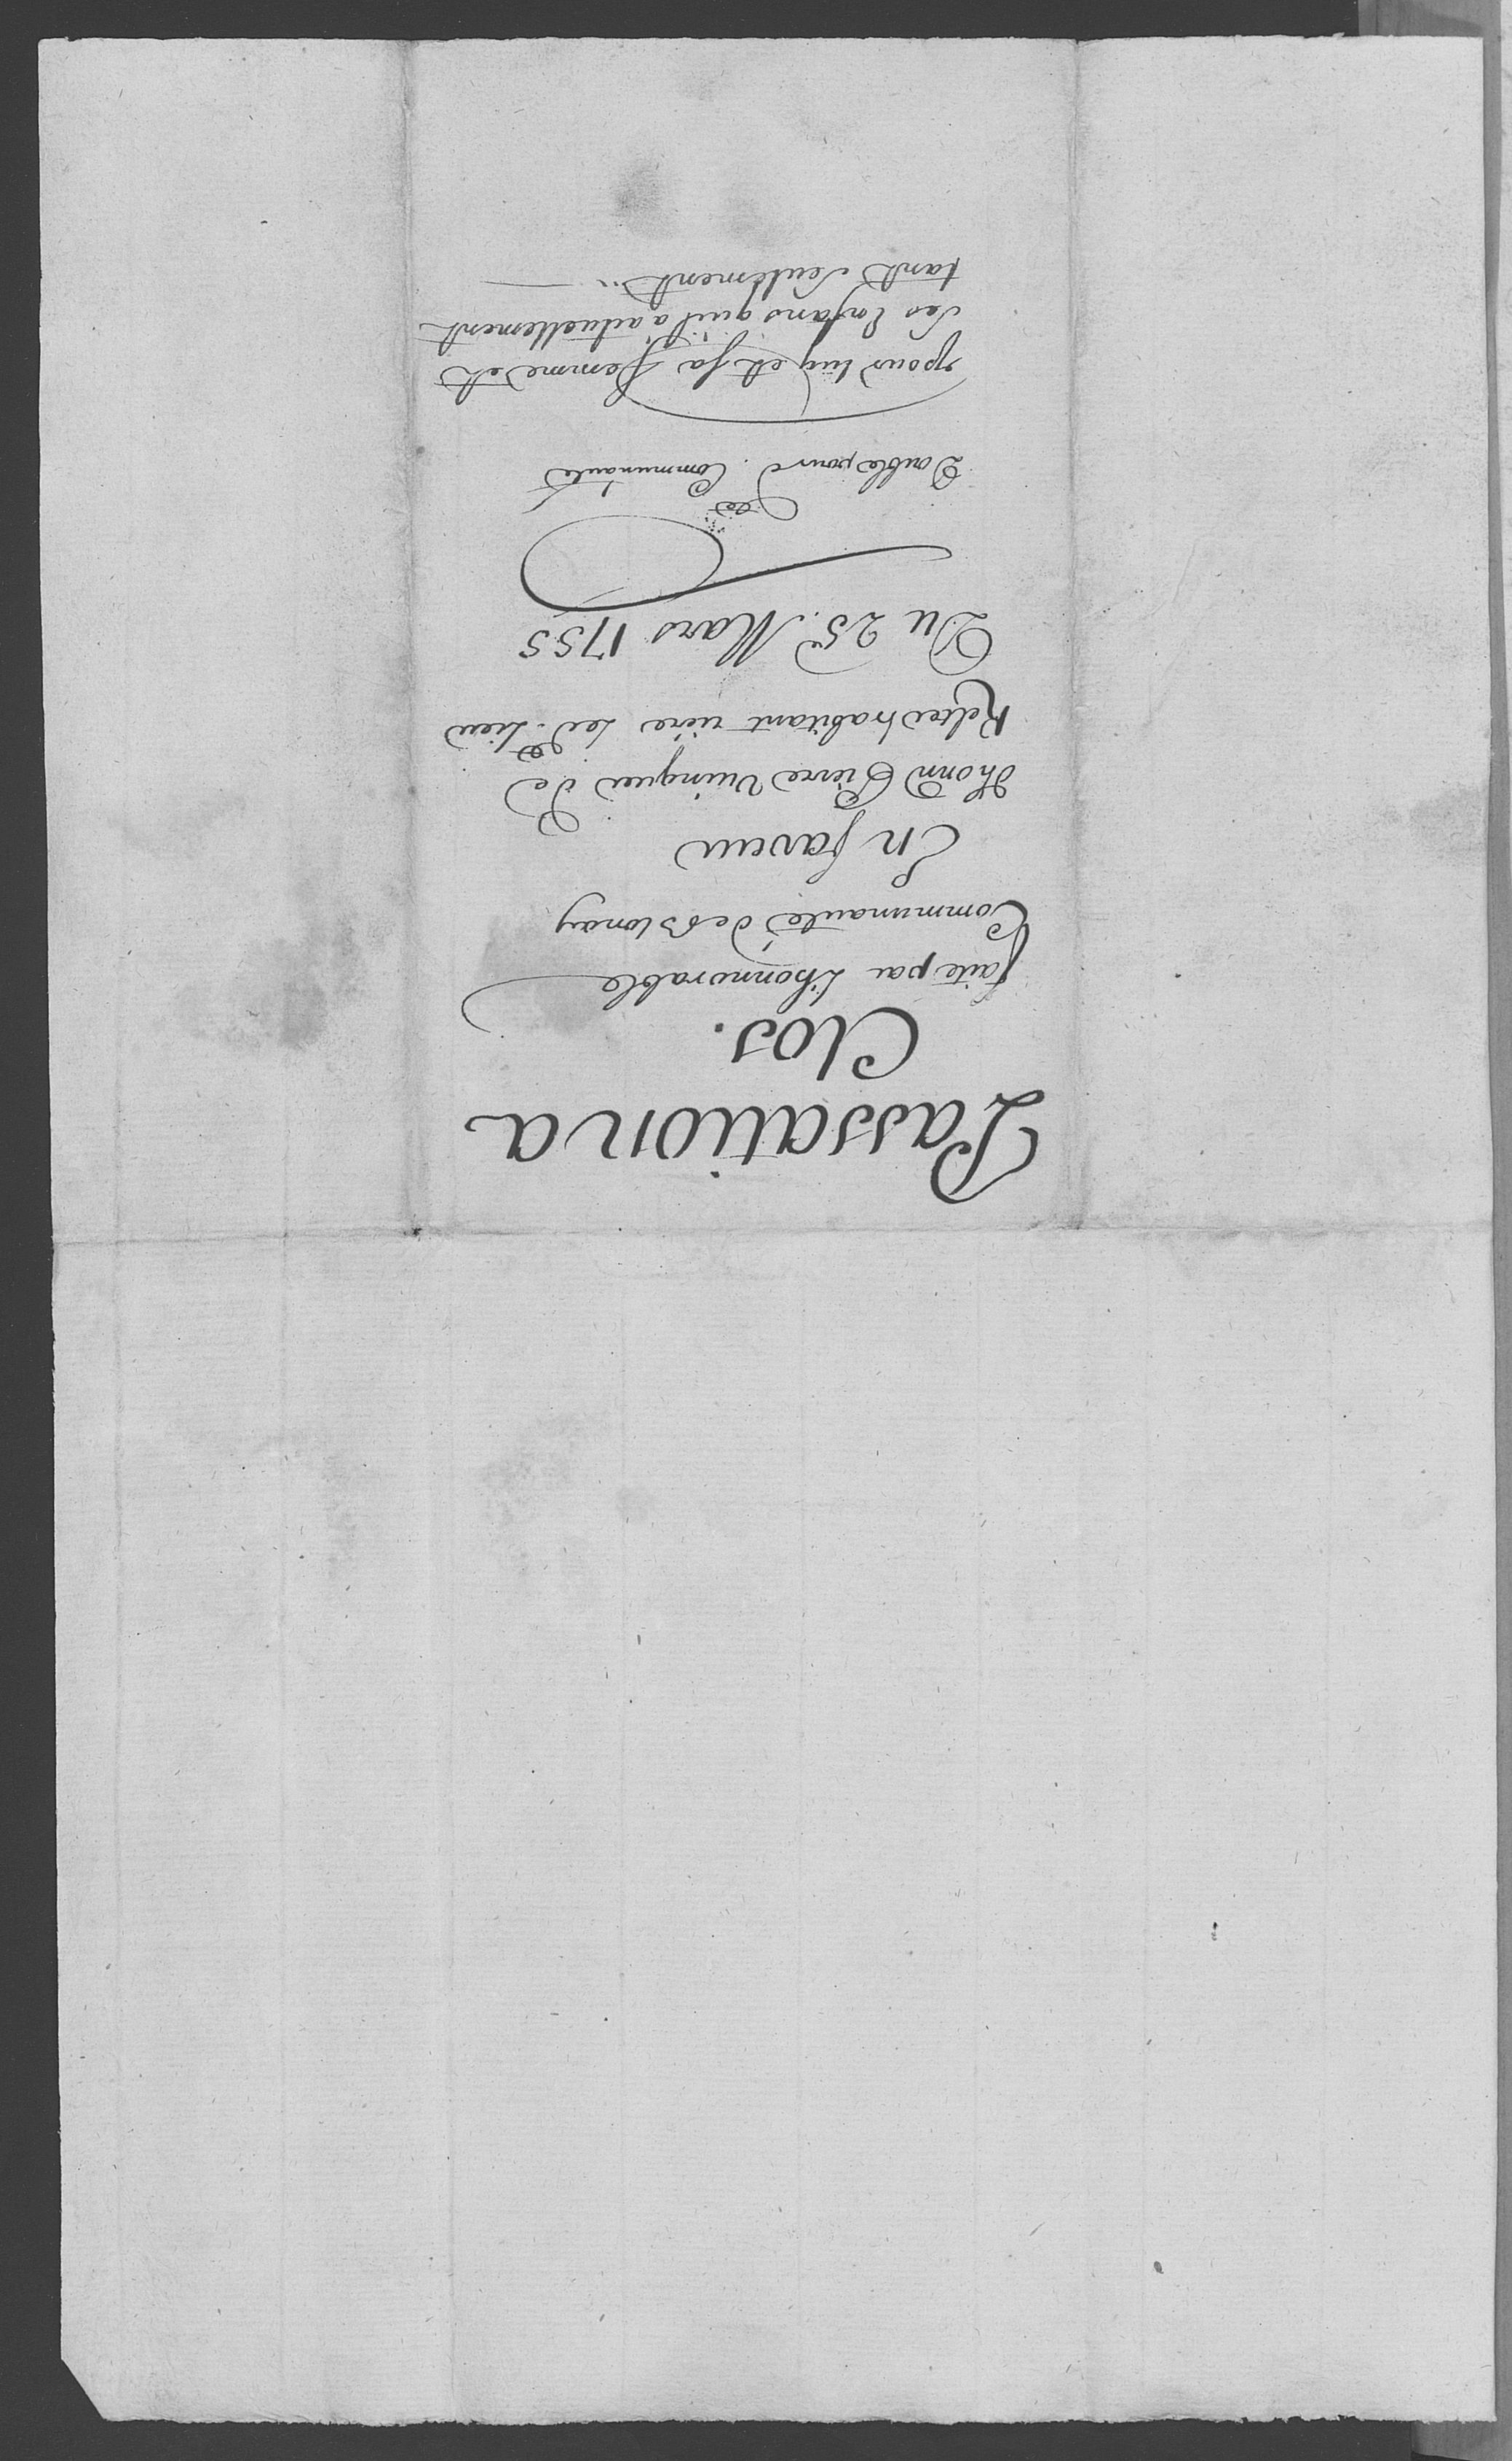 Passation a
Clos.
faite par L'honnorable
Communauté de Blonay
En faveur
d'honn Pierre Vuinguer de
habitant riére led. Lieu
Du 25e. Mars 1755
Double pour d. Communauté
pour luy et sa femme et
ses Enfans qu'il a actuellement
tant seulement